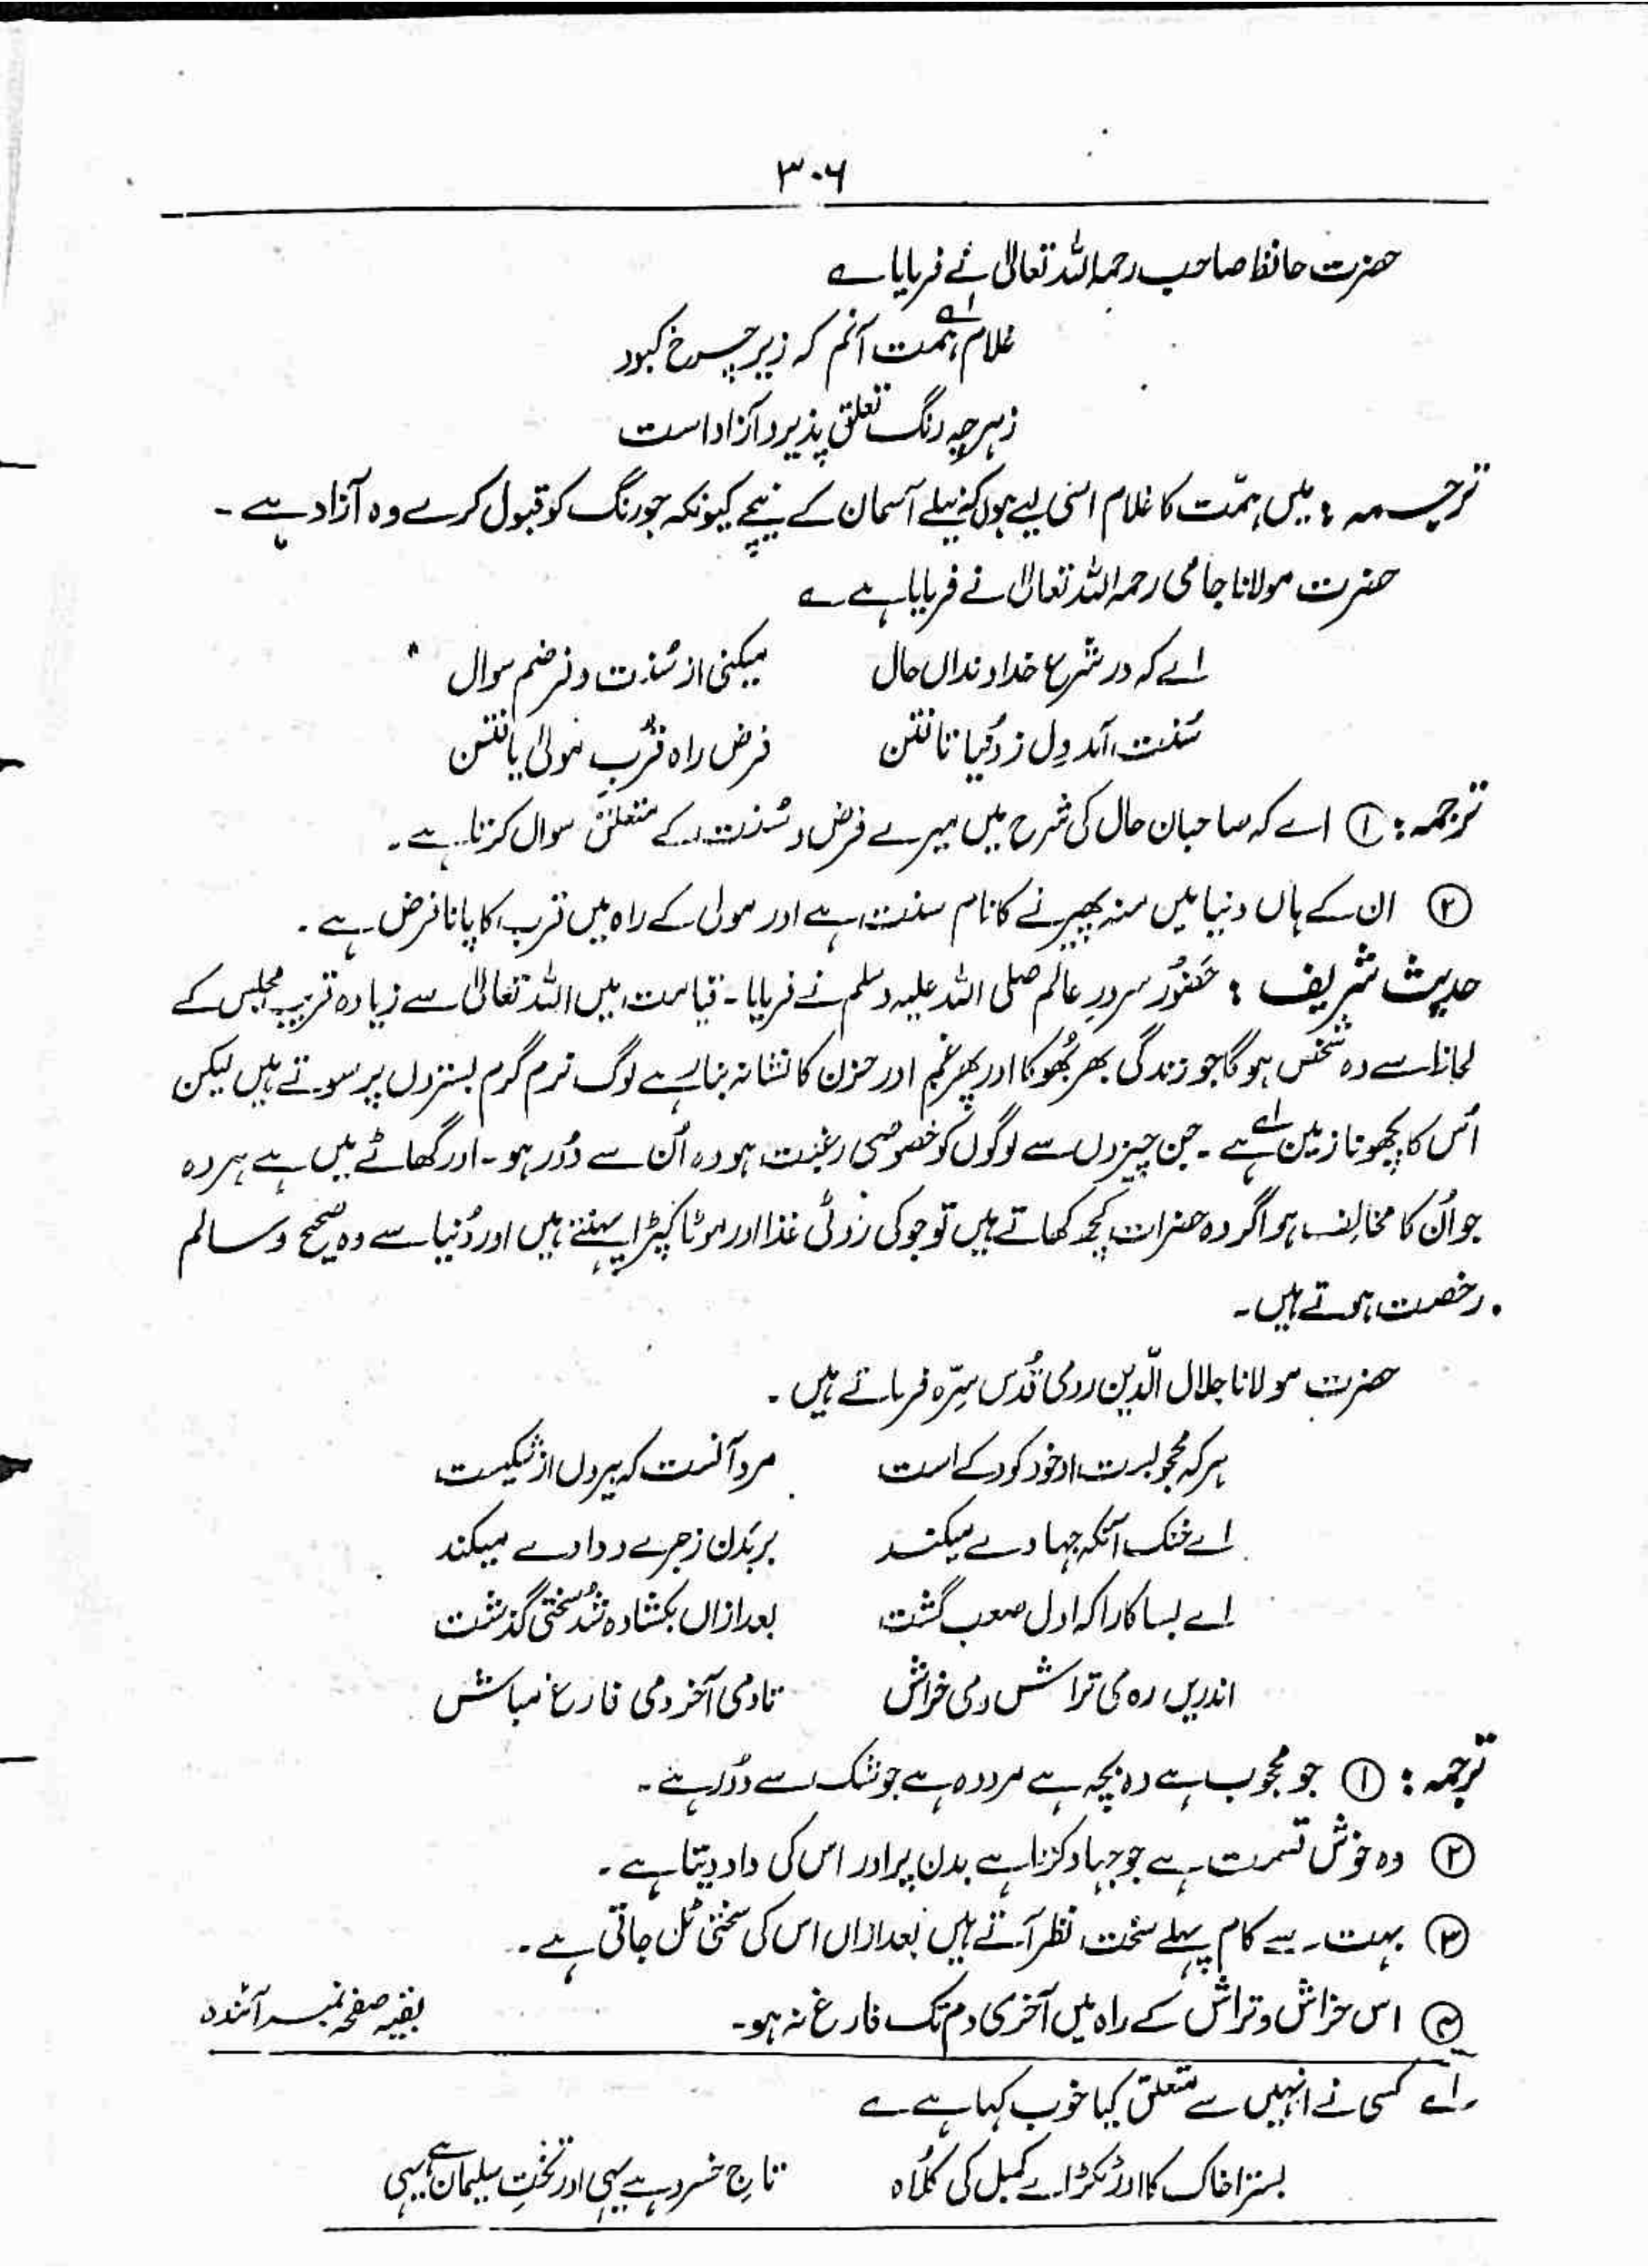 ۳۰۶
حضرت حافظ صاحب رحمہ اللہ تعالیٰ نے فرمایا ؎
غلام ہمت آنم کہ زیر چرخ کبود
زہرچہ رنگ تعلق پذیرد آزاد است
ترجمہ : میں ہمّت کا غلام اسی لیے ہوں کہ نیلے آسمان کے نیچے کیونکہ جو رنگ کو قبول کرے وہ آزاد ہے ۔
حضرت مولانا جامی رحمہ اللہ تعالیٰ نے فرمایا ہے ؎
اے کہ در شرع خداوندان حال میکنی از سُنت و فرضم سوال
سُنت آمد دِل ز دُنیا تافتن فرض راہ قُربِ مولیٰ یافتن
ترجمہ : ① اے کہ صاحبان حال کی شرح میں میرے فرض و سُنت کے متعلق سوال کرتا ہے ۔
② ان کے ہاں دنیا میں منہ پھیرنے کا نام سنت ہے اور مولیٰ کے راہ میں قرب کا پانا فرض ہے ۔
حدیث شریف : حَضُور سرورِ عالم صلی اللہ علیہ وسلم نے فرمایا ۔ قیامت میں اللہ تعالیٰ سے زیادہ قریب مجلس کے
لحاظ سے وہ شخص ہوگا جو زندگی بھر بھُوکا اور پھر غم اور حزن کا نشانہ بنا رہے لوگ نرم گرم بستروں پر سوتے ہیں لیکن
اُس کا بچھونا زمین لے ہے ۔ جن چیزوں سے لوگوں کو خصوصی رغبت ہو وہ اُن سے دُور ہو ۔ اور گھاٹے میں ہے ہر وہ
جو اُن کا مخالِف ہو اگر وہ حضرات کچھ کھاتے ہیں تو جو کی روٹی غذا اور موٹا کپڑا پہنتے ہیں اور دُنیا سے وہ صحیح و سالم
رخصت ہوتے ہیں ۔
حضرت مولانا جلال الدّین رومی قُدس سِرّہ فرماتے ہیں ۔
ہر کہ محجوبست او خود کودکے است مرد آنست کہ بیروں از شکیست
اے خنک آنکہ جہادے میکند بر بَدن زجرے و دادے میکند
اے بسا کارا کہ اول صعب گشت بعد ازاں بکشادہ شُد سختی گذشت
اندریں رہ می تراش و می خراش تا دمی آخر دمی فارغ مباش
ترجمہ : ① جو محجوب ہے وہ بچہ ہے مرد وہ ہے جو شک سے دُور ہے ۔
② وہ خوش قسمت ہے جو جہاد کرتا ہے بدن پر اور اس کی داد دیتا ہے ۔
③ بہت سے کام پہلے سخت نظر آتے ہیں بعد ازاں اس کی سختی ٹل جاتی ہے ۔
④ اس خراش و تراش کے راہ میں آخری دم تک فارغ نہ ہو ۔ بقیہ صفحہ نمبر آئندہ
لے کسی نے انہیں سے متعلق کیا خوب کہا ہے ؎
بسترا خاک کا اور ٹکڑا ہے کمبل کی کُلاہ تاجِ خسرو ہے یہی اور تختِ سلیمان ہے یہی